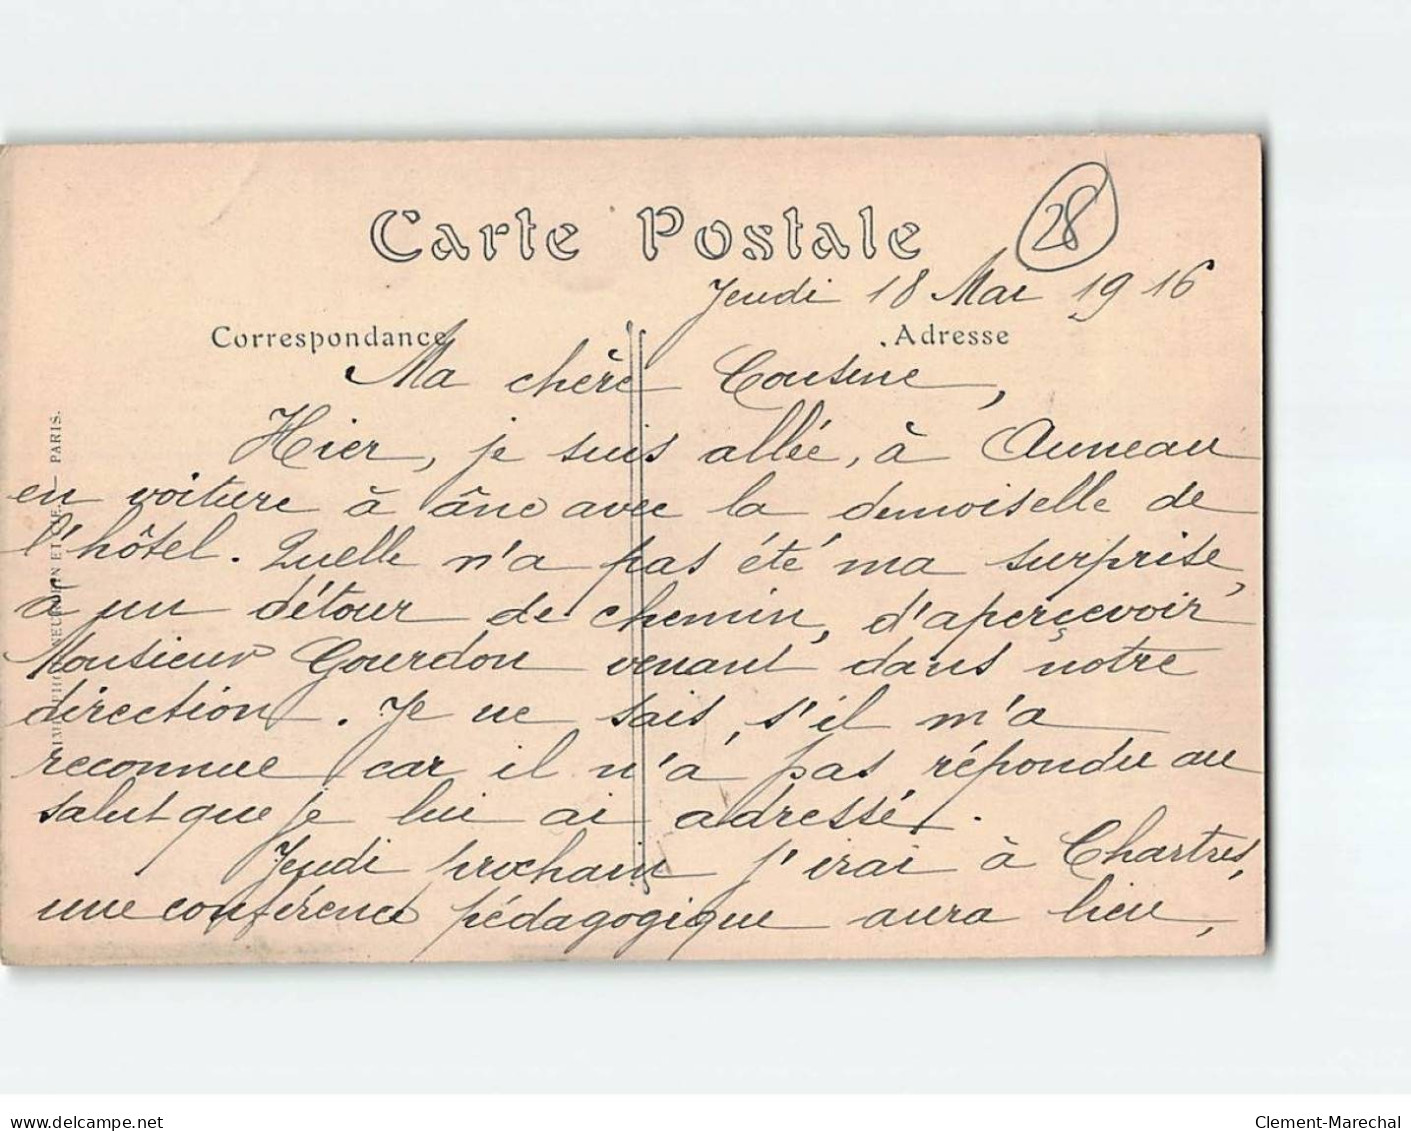 Carte Postale
28
Jeudi 18 Mai 1916
Correspondance
Adresse
Ma chère Cousine,
Hier, je suis allée, à Auneau
en voiture à âne avec la demoiselle de
l'hôtel. Quelle n'a pas été ma surprise,
à un détour de chemin, d'aperçevoir
Monsieur Gourdon venant dans notre
direction. Je ne sais, s'il m'a
reconnue car il n'a pas répondu au
salut que je lui ai adressé.
Jeudi prochain j'irai à Chartres,
une conférence pédagogique aura lieu,
NEURDEIN ET CIE. PARIS.
delcampe.net
Clement-Marechal